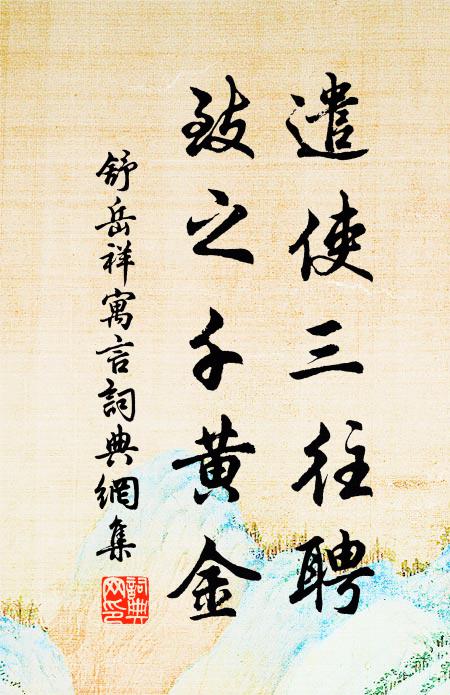 遣使三往聘
致之千黄金
舒岳祥寓言詞典網集
詞典网印